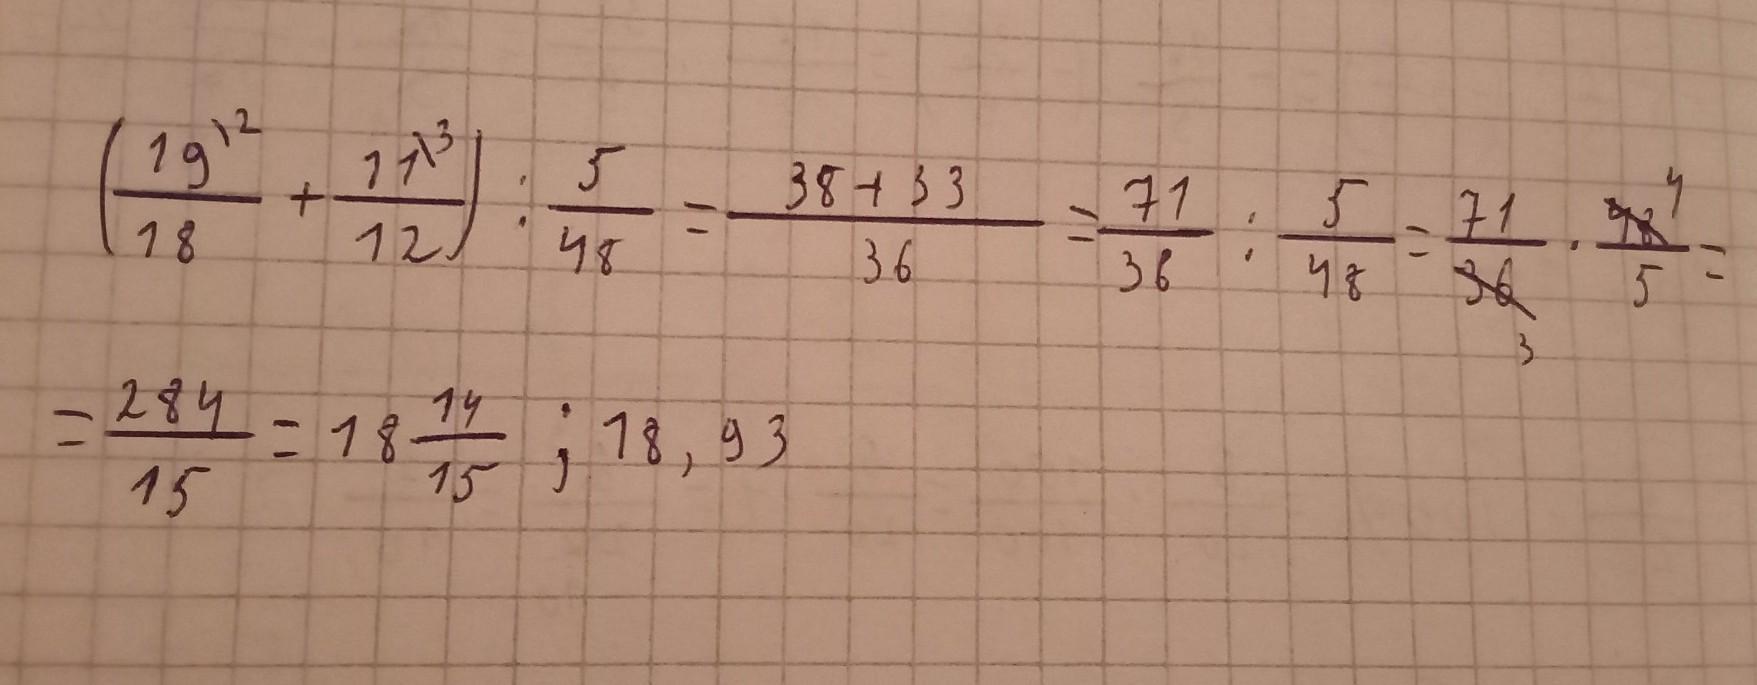 (19\2/18 + 11\3/12) : 5/48 = 38+33/36 = 71/36 : 5/48 = 71/36 3 · 48 4/5 =
= 284/15 = 18 14/15 ; 18,93